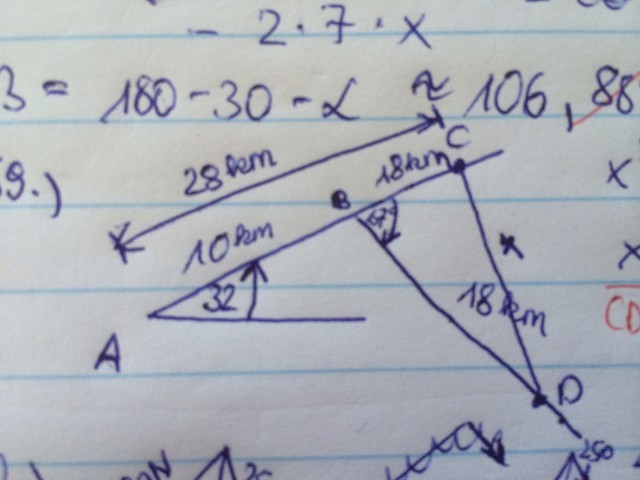 - 2·7·x
3 = 180-30-α ≈ 106,88
9.)
28km
C
18km
B
10km
67
x
x
32
18km
x
CD
A
D
250